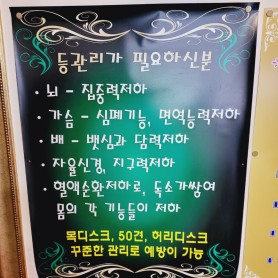 등관리가 필요하신분
· 뇌 - 집중력저하
· 가슴 - 심폐기능, 면역능력저하
· 배 - 뱃심과 담력저하
· 자율신경, 지구력저하
· 혈액순환저하로, 독소가쌓여
몸의 각 기능들이 저하
목디스크, 50견, 허리디스크
꾸준한 관리로 예방이 가능